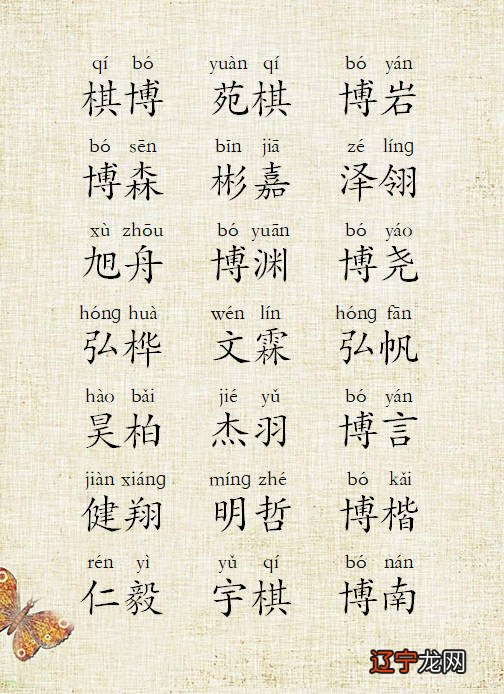 qí bó yuàn qí bó yán
棋博 苑棋 博岩
bó sēn bīn jiā zé líng
博森 彬嘉 泽翎
xù zhōu bó yuān bó yáo
旭舟 博渊 博尧
hóng huà wén lín hóng fān
弘桦 文霖 弘帆
hào bǎi jié yǔ bó yán
昊柏 杰羽 博言
jiàn xiáng míng zhé bó kǎi
健翔 明哲 博楷
rén yì yǔ qí bó nán
仁毅 宇棋 博南
辽宁龙网